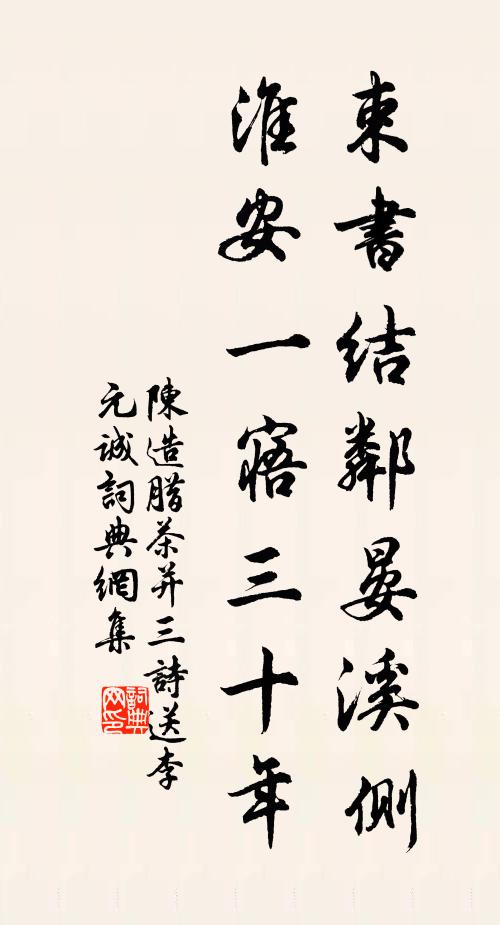 束書結鄰晏溪側
淮安一寤三十年
陳造腊茶并三詩送李
元诚詞典網集
詞典网印